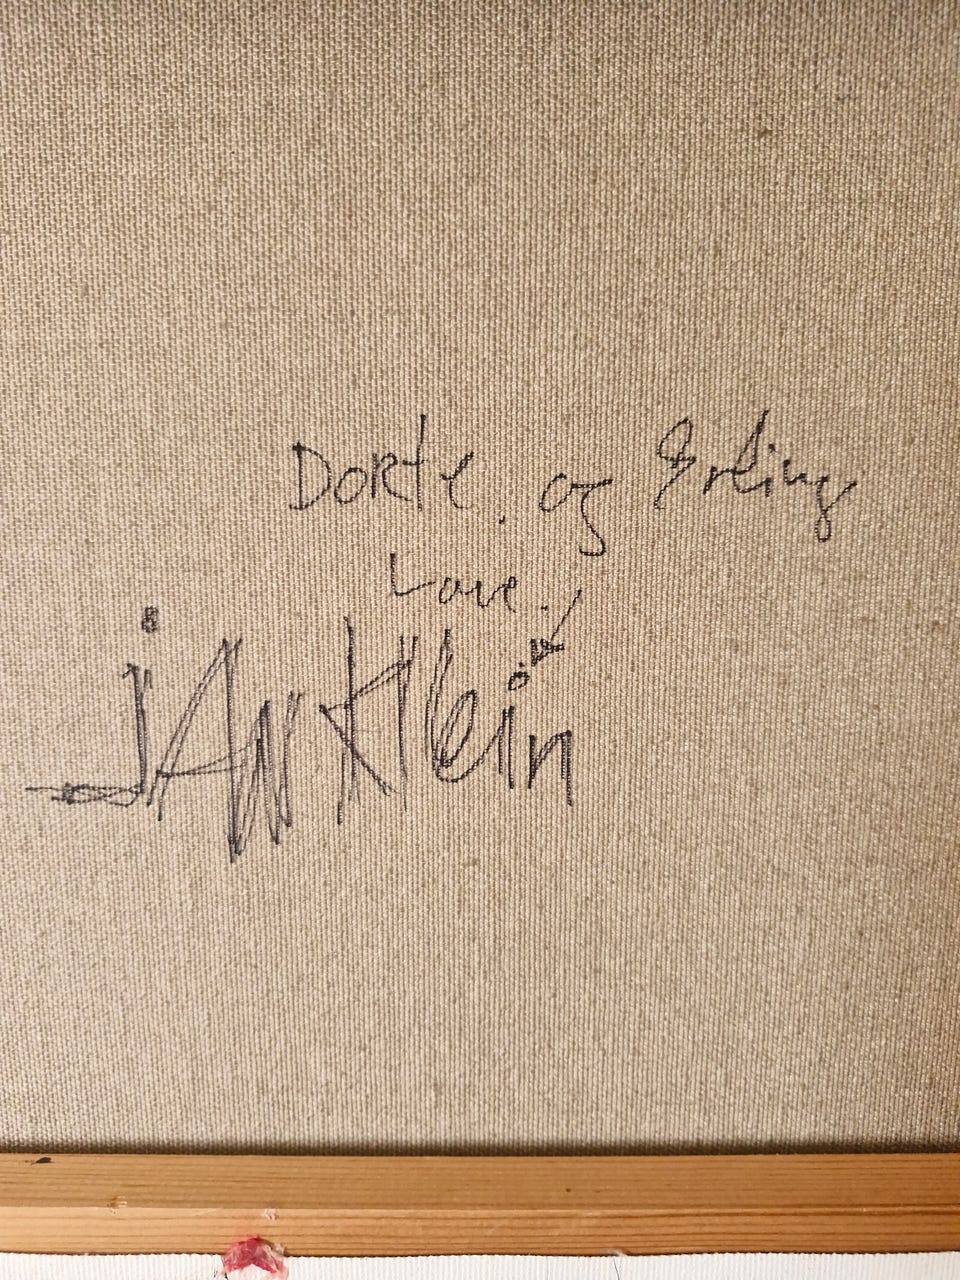 Dorte. og Erling
Love.!
jAN Klein